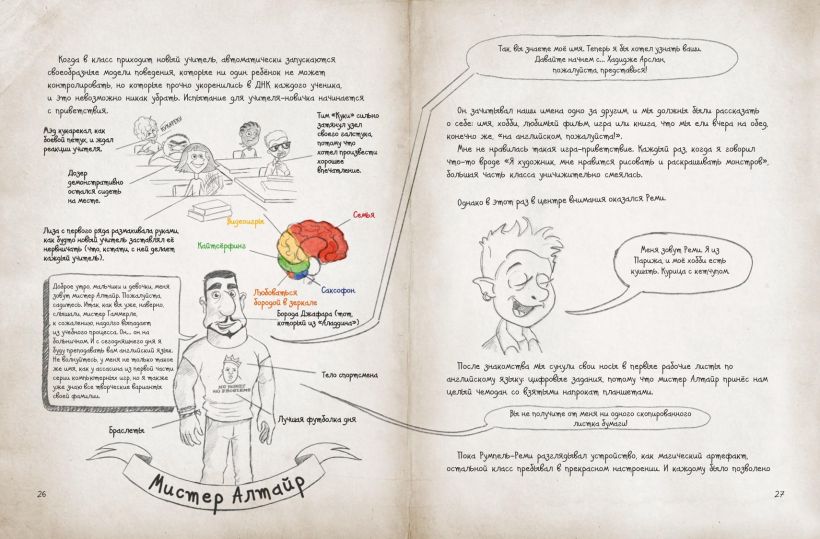 Когда в класс приходит новый учитель, автоматически запускаются
своеобразные модели поведения, которые ни один ребёнок не может
контролировать, но которые прочно укоренились в ДНК каждого ученика,
и это невозможно никак убрать. Испытание для учителя-новичка начинается
с приветствия.
Мэд кукарекал, как
боевой петух, и ждал
реакции учителя.
Тим «Куки» сильно
затянул узел
своего галстука,
потому что
хотел произвести
хорошее
впечатление.
Дозер
демонстративно
остался сидеть
на месте.
Лиза с первого ряда размахивала руками,
как будто новый учитель заставлял её
нервничать (что, кстати, с ней делает
каждый учитель).
Видеоигры
Семья
Кайтсёрфинг
Саксофон
Любоваться
бородой в зеркале
Доброе утро, мальчики и девочки, меня
зовут мистер Алтайр. Пожалуйста,
садитесь. Итак, как вы уже, наверно,
слышали, мистер Гаммерле,
к сожалению, надолго выпадает
из учебного процесса. Он... он на
больничном. И с сегодняшнего дня я
буду преподавать вам английский язык.
Не волнуйтесь, у меня не только такое
же имя, как у ассасина из первой части
серии компьютерных игр, но я также
уже знаю все творческие варианты
своей фамилии.
Борода Джафара (тот,
который из «Аладдина»)
Тело спортсмена
Лучшая футболка дня
Браслеты
Мистер Алтайр
26
Так, вы знаете моё имя. Теперь я бы хотел узнать ваши.
Давайте начнём с... Хадидже Арслан,
пожалуйста, представься!
Он зачитывал наши имена одно за другим, и мы должны были рассказать
о себе: имя, хобби, любимый фильм, игра или книга, что мы ели вчера на обед,
конечно же, «на английском, пожалуйста!».
Мне не нравилась такая игра-приветствие. Каждый раз, когда я говорил
что-то вроде «Я художник, мне нравится рисовать и раскрашивать монстров»,
большая часть класса уничижительно смеялась.
Однако в этот раз в центре внимания оказался Реми.
Меня зовут Реми. Я из
Парижа, и моё хобби есть
кушать. Курица с кетчупом.
После знакомства мы сунули свои носы в первые рабочие листы по
английскому языку: цифровые задания, потому что мистер Алтайр принёс нам
целый чемодан со взятыми напрокат планшетами.
Вы не получите от меня ни одного скопированного
листка бумаги!
Пока Румпель-Реми разглядывал устройство, как магический артефакт,
остальной класс пребывал в прекрасном настроении. И каждому было позволено
27